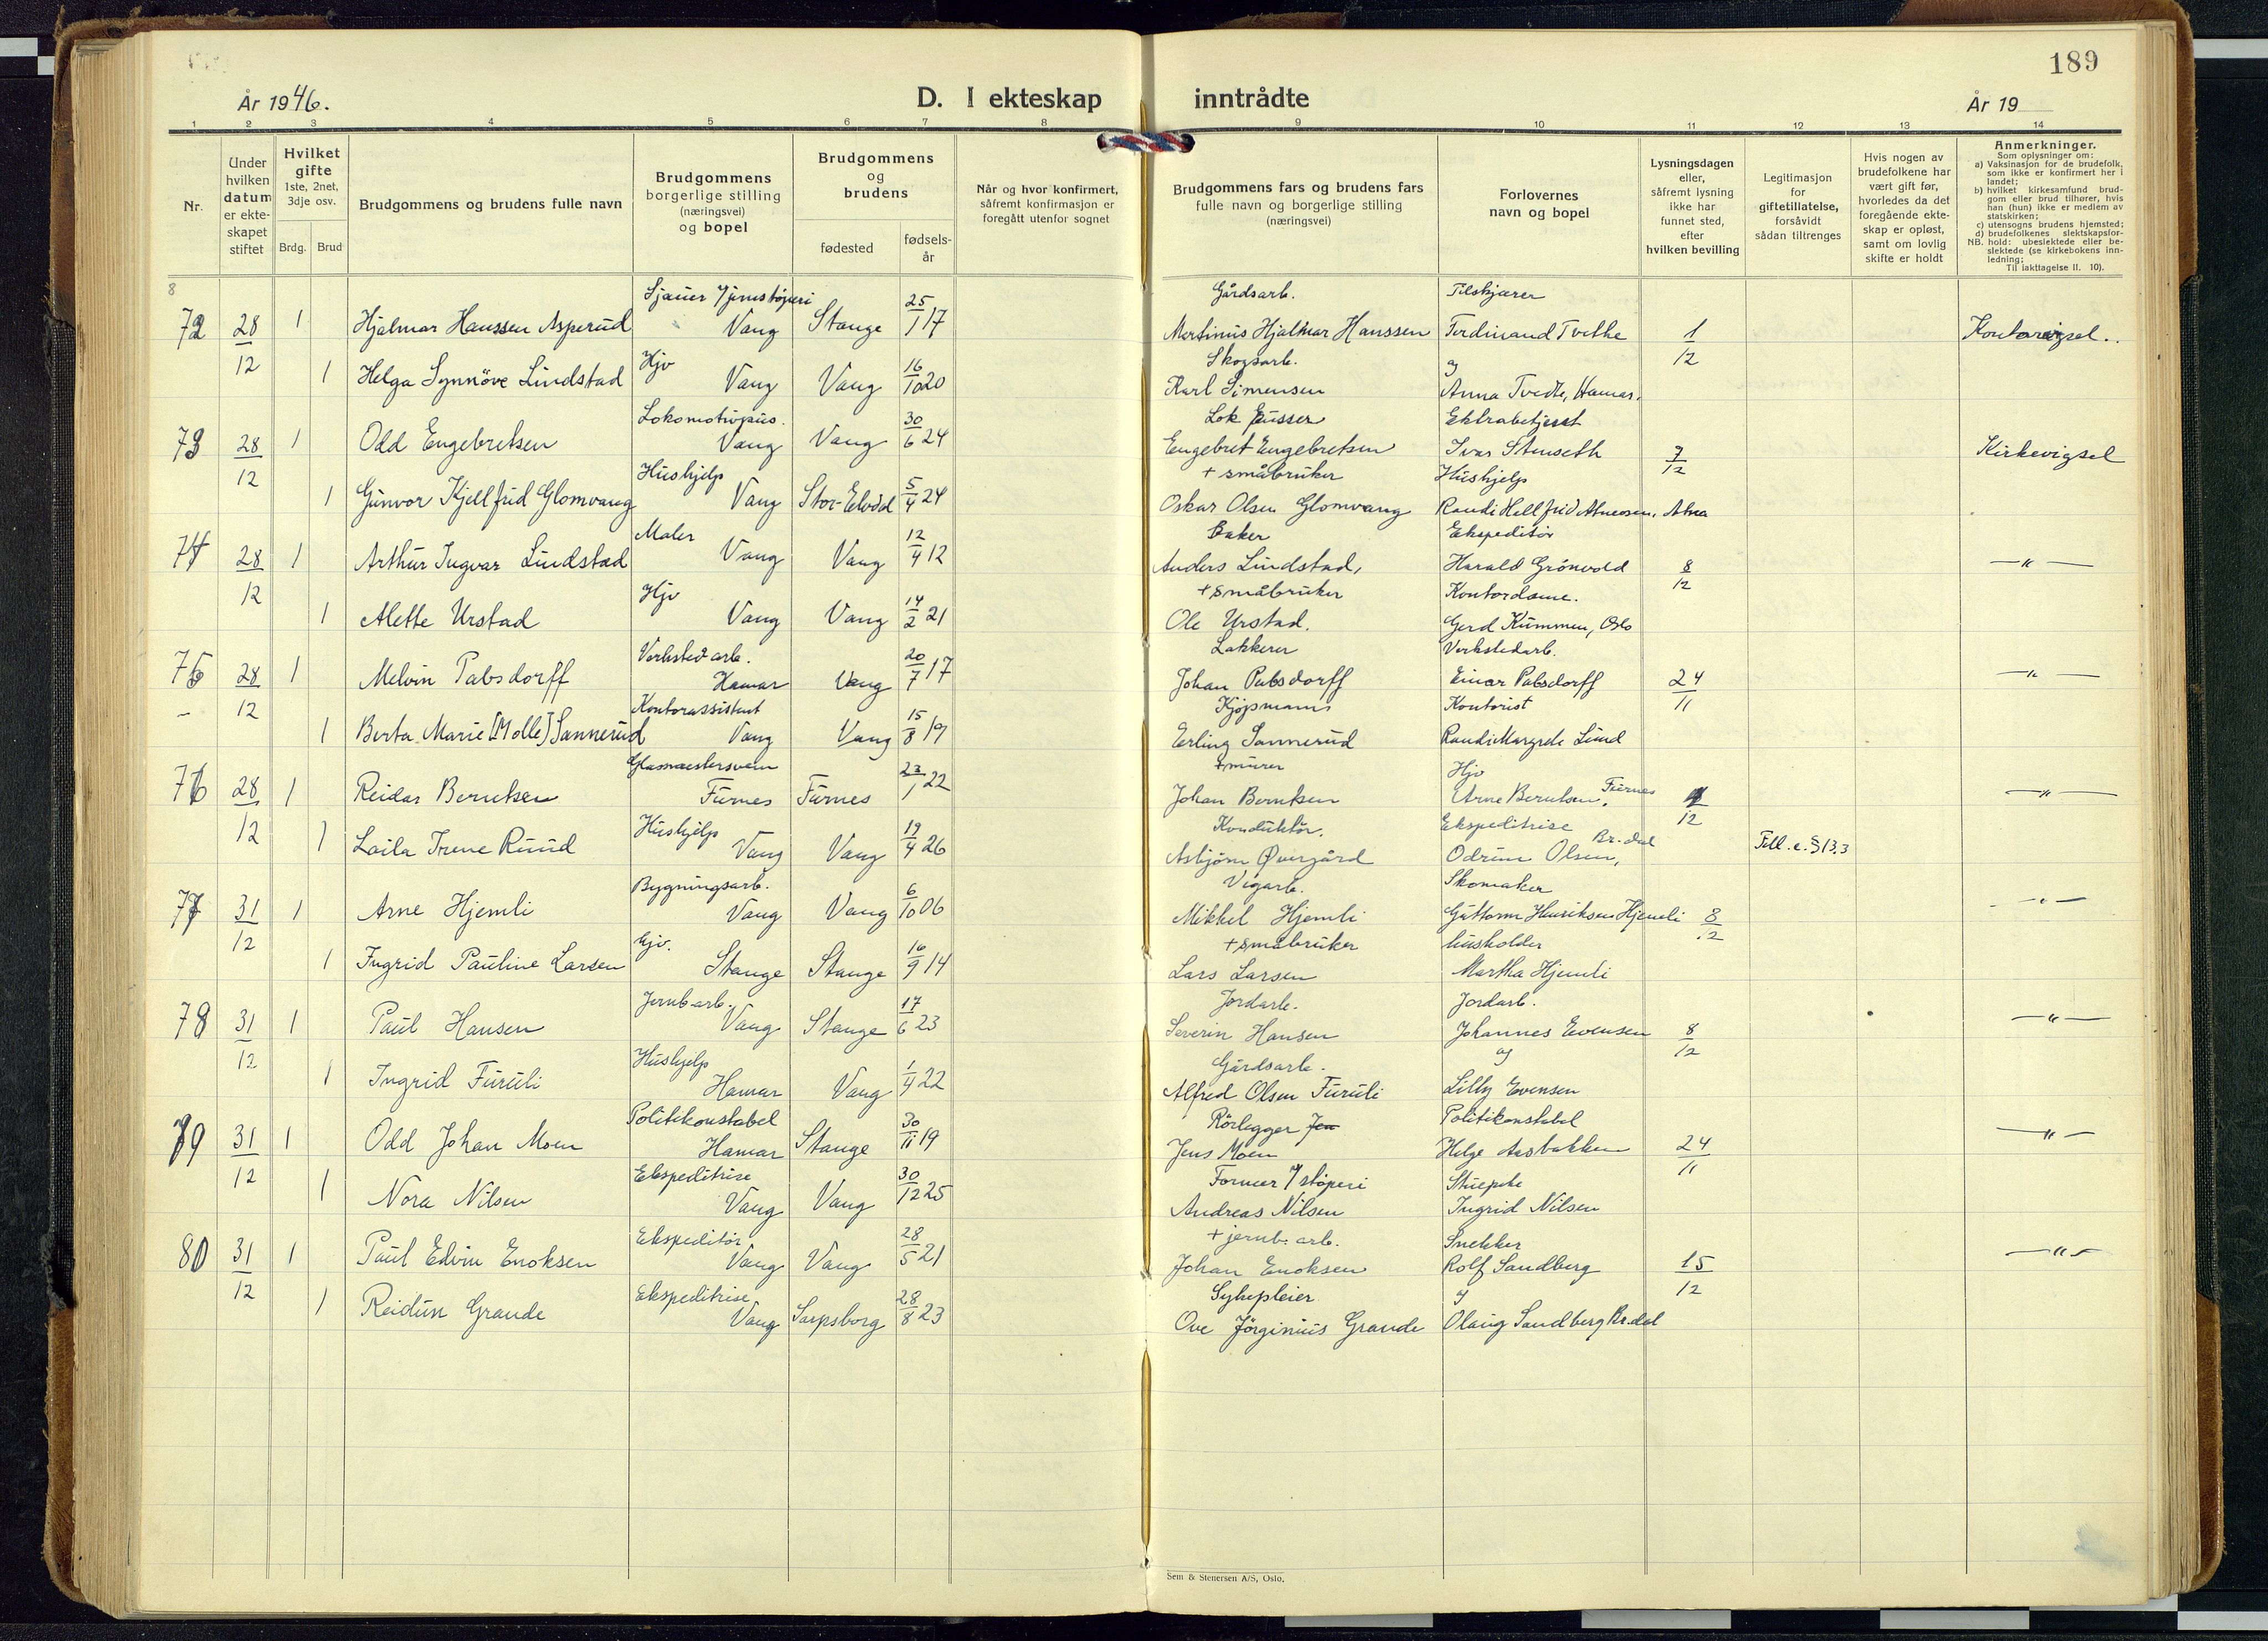 189
År 1946.
D. I ekteskap inntrådte
År 19
1 2 3 4 5 6 7 8 9 10 11 12 13 14
Nr.
Under hvilken datum er ekteskapet stiftet
Hvilket gifte
1ste, 2net, 3dje osv.
Brdg. Brud
Brudgommens og brudens fulle navn
Brudgommens borgerlige stilling (næringsvei) og bopel
Brudgommens og brudens
fødested
fødselsår
Når og hvor konfirmert, såfremt konfirmasjon er foregått utenfor sognet
Brudgommens fars og brudens fars fulle navn og borgerlige stilling (næringsvei)
Forlovernes navn og bopel
Lysningsdagen eller, såfremt lysning ikke har funnet sted, efter hvilken bevilling
Legitimasjon for giftetillatelse, forsåvidt sådan tiltrenges
Hvis nogen av brudefolkene har vært gift før, hvorledes da det foregående ekteskap er opløst, samt om lovlig skifte er holdt
Anmerkninger.
Som oplysninger om:
a) Vaksinasjon for de brudefolk, som ikke er konfirmert her i landet;
b) hvilket kirkesamfund brudgom eller brud tilhører, hvis han (hun) ikke er medlem av statskirken;
c) utensogns brudens hjemsted;
d) brudefolkenes slektskapsforhold: ubeslektede eller beslektede (se kirkebokens innledning;
NB. Til iakttagelse II. 10).
8
Gårdsarb.
72 28/12 1 Hjalmar Hanssen Asperud Vang Stange 25/1 17 Martinus Hjalmar Hanssen Ferdinand Tvethe 1/12
Hjv Skogsarb. og
1 Helga Synnöve Lindstad Vang Vang 16/10 20 Karl Simensen Anna Tvedte, Hamar.
Lokomotivpus. Lok pusser Ektrabetjent
73 28/12 1 Odd Engebretsen Vang Vang 30/6 24 Engebret Engebretsen Ivar Stenseth 7/12 Kirkevigsel
Hushjelp + småbruker Hushjelp
1 Gunvor Kjellfrid Glomvang Vang Stor-Elvdal 5/4 24 Oskar Olsen Glomvang
Maler Baker Ekspeditör
74 28/12 1 Arthur Ingvar Lindstad Vang Vang 12/4 12 Anders Lindstad, Harald Grönvold 8/12 — " —
Hjv + småbruker Kontordame.
1 Alette Urstad Vang Vang 14/2 21 Ole Urstad. Gerd Kummen, Oslo
Verksted arb. Lakkerer Verkstedarb.
75 28/12 1 Melvin Pabsdorff Hamar Vang 20/7 17 Johan Pabsdorff Einar Pabsdorff 24/11 — " —
Kontorassistent Kjøpmann Kontorist
1 Berta Marie [Molle] Sannerud Vang Vang 15/8 19 Erling Sannerud Randi Margrete Lund
Glassmestersvein + murer Hjv
76 28/12 1 Reidar Berntsen Furnes Furnes 23/1 22 Johan Berntsen Arne Berntsen, Furnes /12 — " —
Hushjelp Konduktör. Ekspeditrise
1 Laila Irene Ruud Vang Vang 19/4 26 Asbjörn Övergård Odrun Olsen, Br.dal Till. e. § 13.3
Bygningsarb. Skomaker
77 31/12 1 Arne Hjemli Vang Vang 6/10 06 Mikkel Hjemli Guttorm Henriksen Hjemli 8/12 — " —
+ småbruker husholder
1 Ingrid Pauline Larsen Stange Stange 16/9 14 Lars Larsen Martha Hjemli
Jernb-arb. Jordarb. Jordarb.
78 31/12 1 Paul Hansen Vang Stange 17/6 23 Severin Hansen Johannes Evensen 8/12 — " —
Hushjelp Gårdsarb. og
1 Ingrid Furuli Hamar Vang 1/4 22 Alfred Olsen Furuli Lilly Evensen
Politikonstabel Rörlegger Politikonstabel
79 31/12 1 Odd Johan Moen Hamar Stange 30/11 19 Jens Moen Helge Aasbakken 24/11 — " —
Ekspeditrise Former J/støperi Stuepike
1 Nora Nilsen Vang Vang 30/12 25 Andreas Nilsen Ingrid Nilsen
Ekspeditör + jernb. arb. Snekker
80 31/12 1 Paul Edvin Enoksen Vang Vang 28/5 21 Johan Enoksen Rolf Sandberg 15/12 — " —
Ekspeditrise Sykepleier og
1 Reidun Grande Vang Sarpsborg 28/8 23 Ove Jörginius Grande Olaug Sandberg Br.dal
Sem & Stenersen A/S, Oslo.